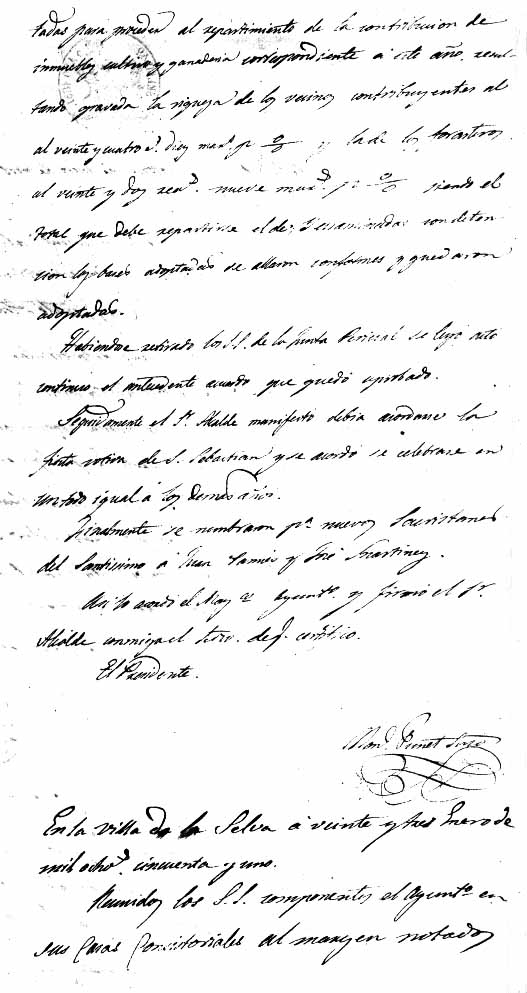 tadas para proceder al repartimiento de la contribucion de
inmuebles cultivo y ganaderia correspondiente á este año, resul-
tando gravada la riqueza de los vecinos contribuyentes al
al veinte y cuatro r.^s diez mar.^s p.^r % y la de los forasteros
al veinte y dos rea.^s nueve mar.^s p.^r % siendo el
total que debe repartirse el de; y ecsaminadas con deten-
cion las bases adoptadas se allaron conformes y quedaron
adoptadas.
Habiendose retirado los S.S. de la Junta Pericial se leyó acto
continuo el antecedente acuerdo que quedó aprobado.
Seguidamente el S.^r Alcalde manifestó debia acordarse la
fiesta votiva de S. Sebastian y se acordó se celebrase en
un todo igual á los demas años.
Finalmente se nombraron p.^a nuevos Sacristanes
del Santissimo á Juan y José Martinez.
Asi lo acordó el Mag.^co Ayunt.^o y firmó el S.^r
Alcalde conmigo el Srio. de q. certifico.
El Presidente.
Man.^l Srio
En la villa de la Selva á veinte y tres Enero de
mil ocho.^s cincuenta y uno.
Reunidos los S.S. componentes el Ayunt.^o en
sus Casas Consistoriales al margen notados